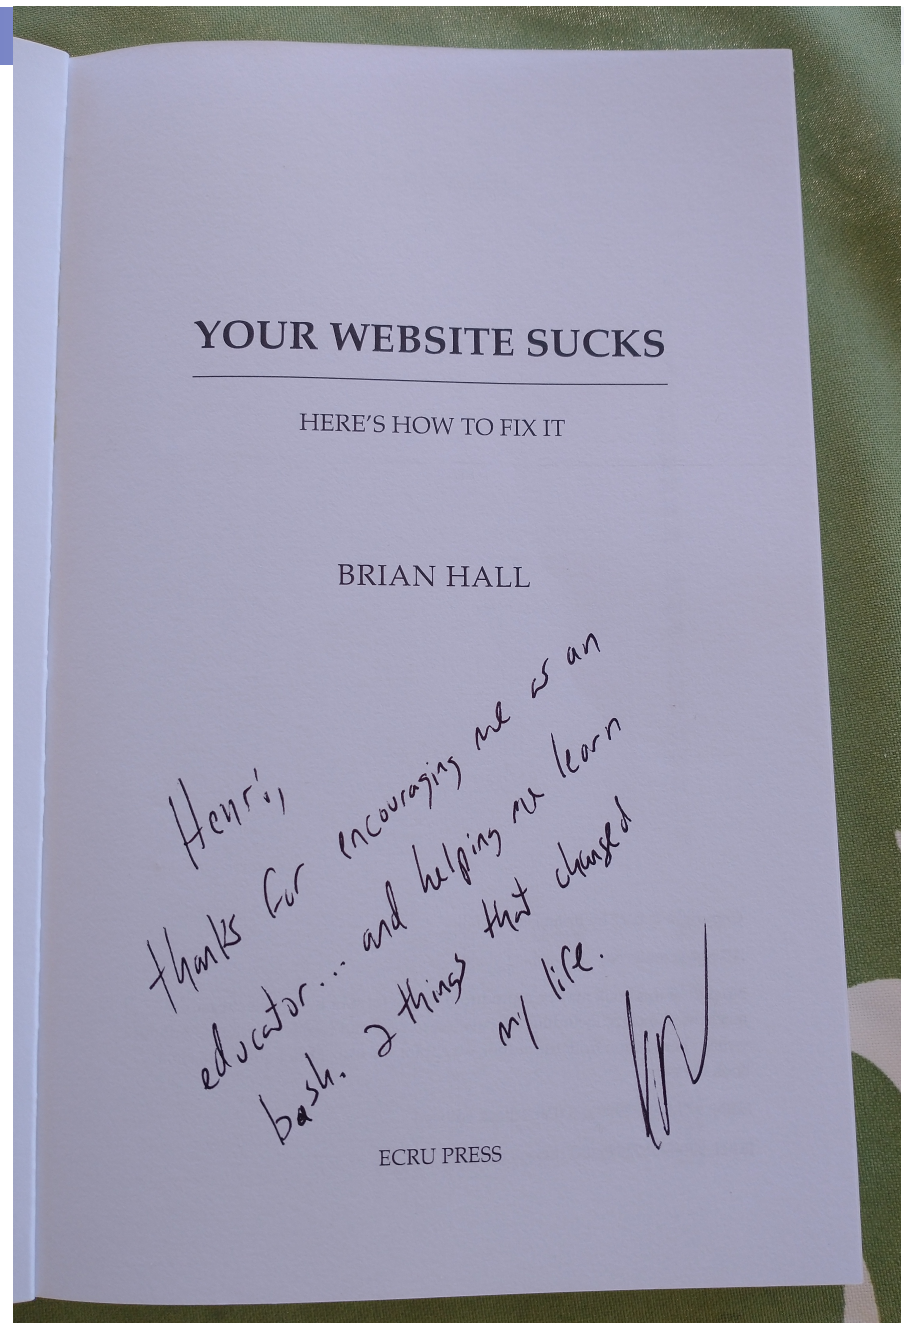 YOUR WEBSITE SUCKS
HERE'S HOW TO FIX IT
BRIAN HALL
Henri,
thanks for encouraging me as an
educator... and helping me learn
bash. 2 things that changed
my life.
ECRU PRESS